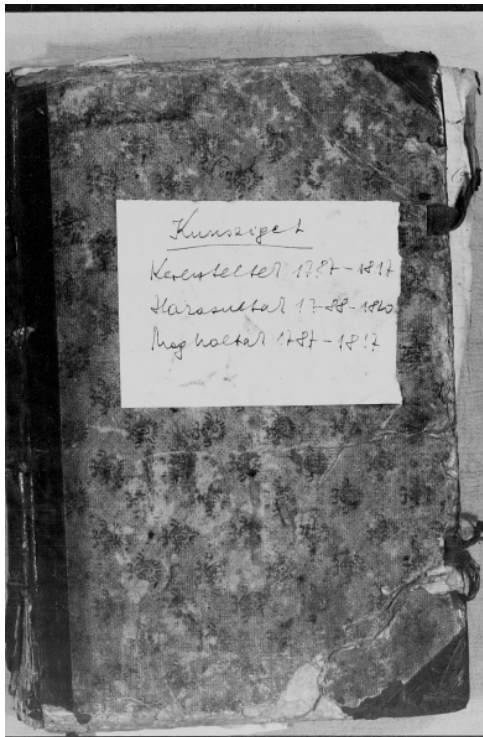 Kunsziget
Kereszteltek 1787-1817
Házasultak 1788-1820
Meg holtak 1787-1817